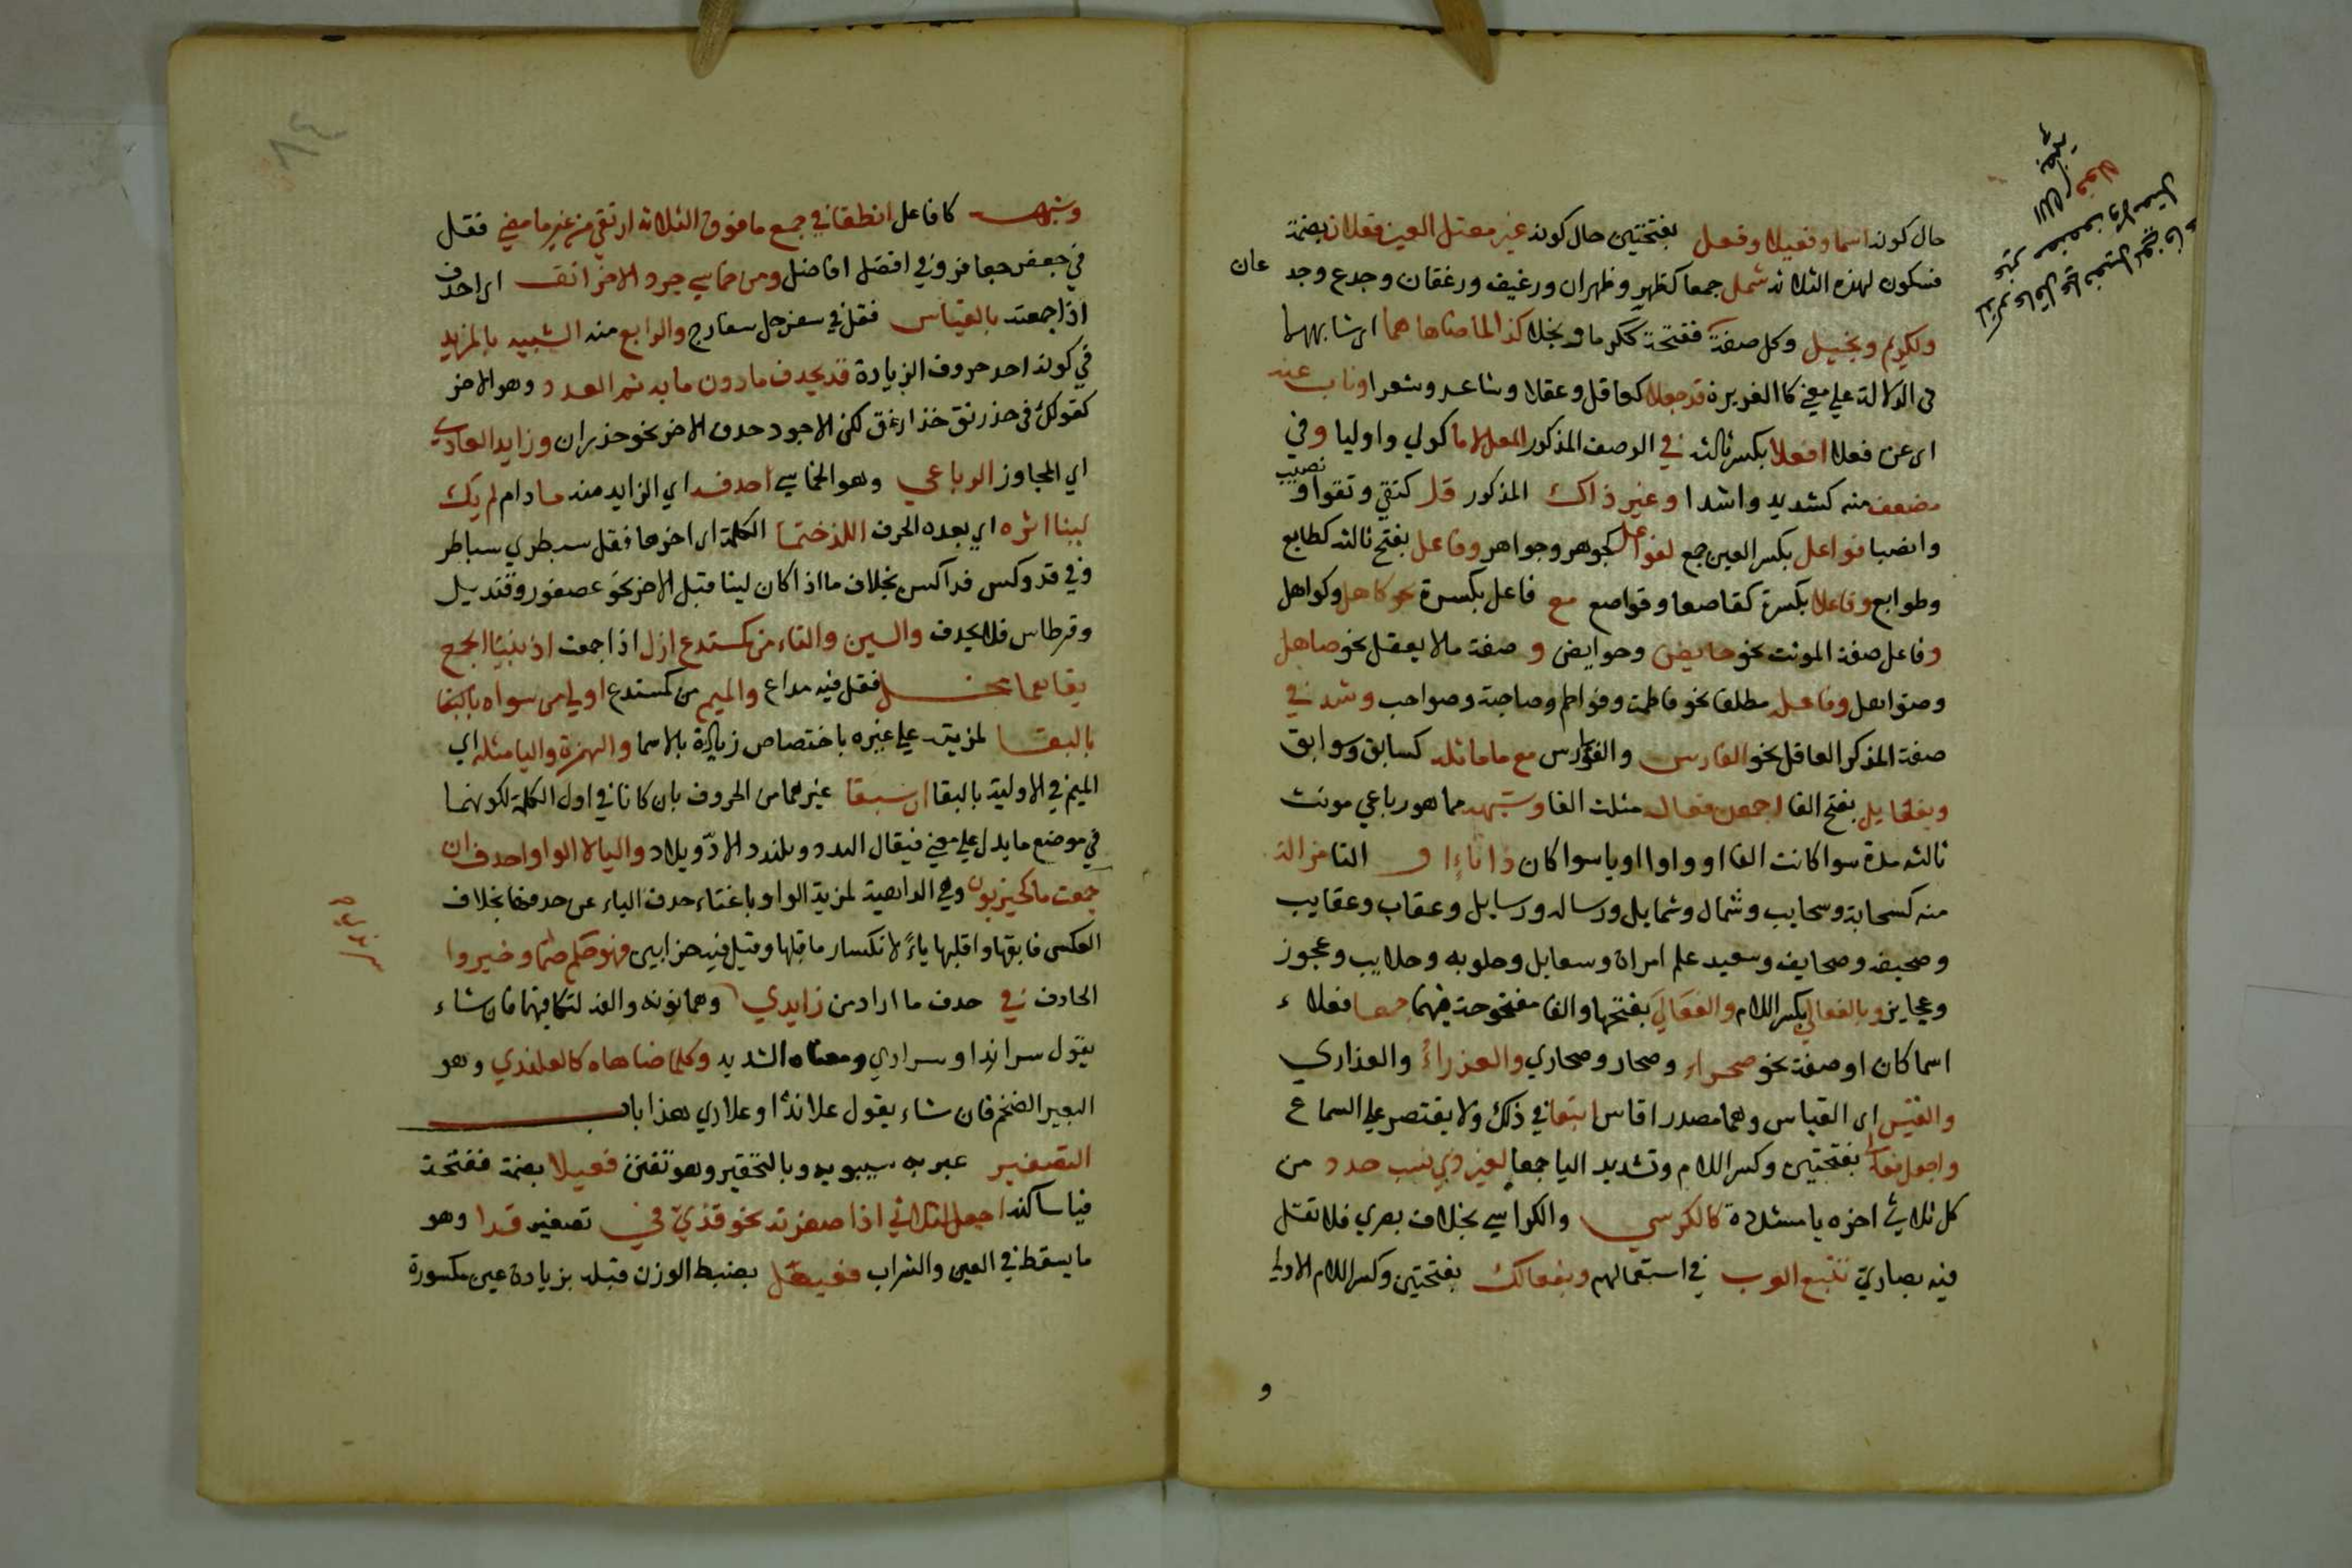 حال كونه اسما وفعيلا وفعل بفتحتين حال كونه غير معتل العين فعلان بضمة
فسكون لهذه الثلاثة شمل جمعا كظهر وظهران ورغيف ورغفان وجدع وجد عان
ولكريم وبخيل وكل صفة ففتحة ككرما وبخلا كذا لما ضاهاهما اي شابههما
في الدلالة علي معني كالغريزة قد جعلا كعاقل وعقلا وشاعر وشعرا وناب عنه
اي عن فعلا افعلا بكسر ثالثه في الوصف المذكور المعل لاما كولي واوليا وفي
مضعف منه كشديد واشدا وغير ذاك المذكور قل كتقي وتقوا ونصيب
وانصبا فواعل بكسر العين جمع لفوعل كجوهر وجواهر وفاعل بفتح ثالثه كطابع
وطوابع وفاعلا بكسرة كقاصعا وقواصع مع فاعل بكسرة نحو كاهل وكواهل
وفاعل صفة المونث نحو حايض وحوايض و صفة ما لا يعقل نحو صاهل
وصواهل وفاعله مطلقا نحو فاطمة وفواطم وصاحبة وصواحب وشذ في
صفة المذكر العاقل نحو الفارس والفوارس مع ما ماثله كسابق وسوابق
وبفعايل بفتح الفا اجمعن فعاله مثلث الفا وشبهه مما هو رباعي مونث
ثالثه مدة سوا كانت الفا او واوا او ياسوا كان ذا تاء او التا مزاله
منه كسحابة وسحايب وشمال وشمايل ورساله ورسايل وعقاب وعقايب
وصحيفه وصحايف وسعيد علم امراة وسعايل وحلوبه وحلايب وعجوز
وعجايز وبالفعالي بكسر اللام والفعالي بفتحها والفا مفتوحة فيهما جمعا فعلاء
اسما كان او صفة نحو صحراء وصحار وصحاري والعذراء والعذاري
والقيس اي القياس وهما مصدر اقاس اتبعا في ذلك ولا يقتصر علي السماع
واجعل فعالي بفتحتين وكسر اللام وتشديد اليا جمعا لغير ذي نسب جدد من
كل ثلاثي اخره يا مشددة كالكرسي والكراسي بخلاف بصري فلا تقل
فيه بصاري تتبع العرب في استعمالهم وبفعالل بفتحتين وكسر اللام الاولي
و
وشبهه كافاعل انطقا في جمع ما فوق الثلاثة ارتقي من غير ما مضي فقل
في جعفر جعافر وفي افضل افاضل ومن خماسي جرد الاخر انف اي احذف
اذا جمعته بالقياس فقل في سفرجل سفارج والرابع منه الشبيه بالمزيد
في كونه احد حروف الزيادة قد يحذف ما دون ما به تم العدد وهو الاخر
كقولك في خدرنق خدارق لكن الاجود حذف الاخر نحو خدران وزايد العادي
اي المجاوز الرباعي وهو الخماسي احذفه اي الزايد منه ما دام لم يك
لينا اثره اي بعده الحرف اللذ ختما الكلمة اي اخرها فقل سبطري سباطر
وفي فدوكس فداكس بخلاف ما اذا كان لينا قبل الاخر نحو عصفور وقنديل
وقرطاس فلا يحذف والسين والتاء من كمستدع ازل اذا جمعت اذ ببنا الجمع
بقاهما مخل فقل فيه مداع والميم من كمستدع اولي من سواه بالبقا
بالبقا لمزيته علي غيره باختصاص زيادة بالاسما والهمزة واليا مثله اي
الميم في الاولية بالبقا ان سبقا غيرهما من الحروف بان كانا في اول الكلمة لكونهما
في موضع ما يدل علي معني فيقال الندد ويلندد الادّ ويلاد واليا لا الواو احذف ان
جمعت ما كحيزبون وهي الداهية لمزية الواو باغناء حذف الياء عن حذفها بخلاف
العكس فابقها واقلبها ياءً لانكسار ما قبلها وقيل فيه حزابين فهو حكم حتما وخيروا
الحاذف في حذف ما اراد من زايدي وهما نونه والفه لتكافيهما فان شاء
يقول سراندا وسرادي ومعناه الشديد وكلما ضاهاه كالعلندي وهو
البعير الضخم فان شاء يقول علاندا وعلادي هذا باب
التصغير عبر به سيبويه وبالتحقير وهو تفنن فعيلا بضمة ففتحة
فيا ساكنه اجعل الثلاثي اذا صغرته نحو قذيّ في تصغير قذا وهو
ما يسقط في العين والشراب فعيعل بضبط الوزن قبله بزيادة عين مكسورة